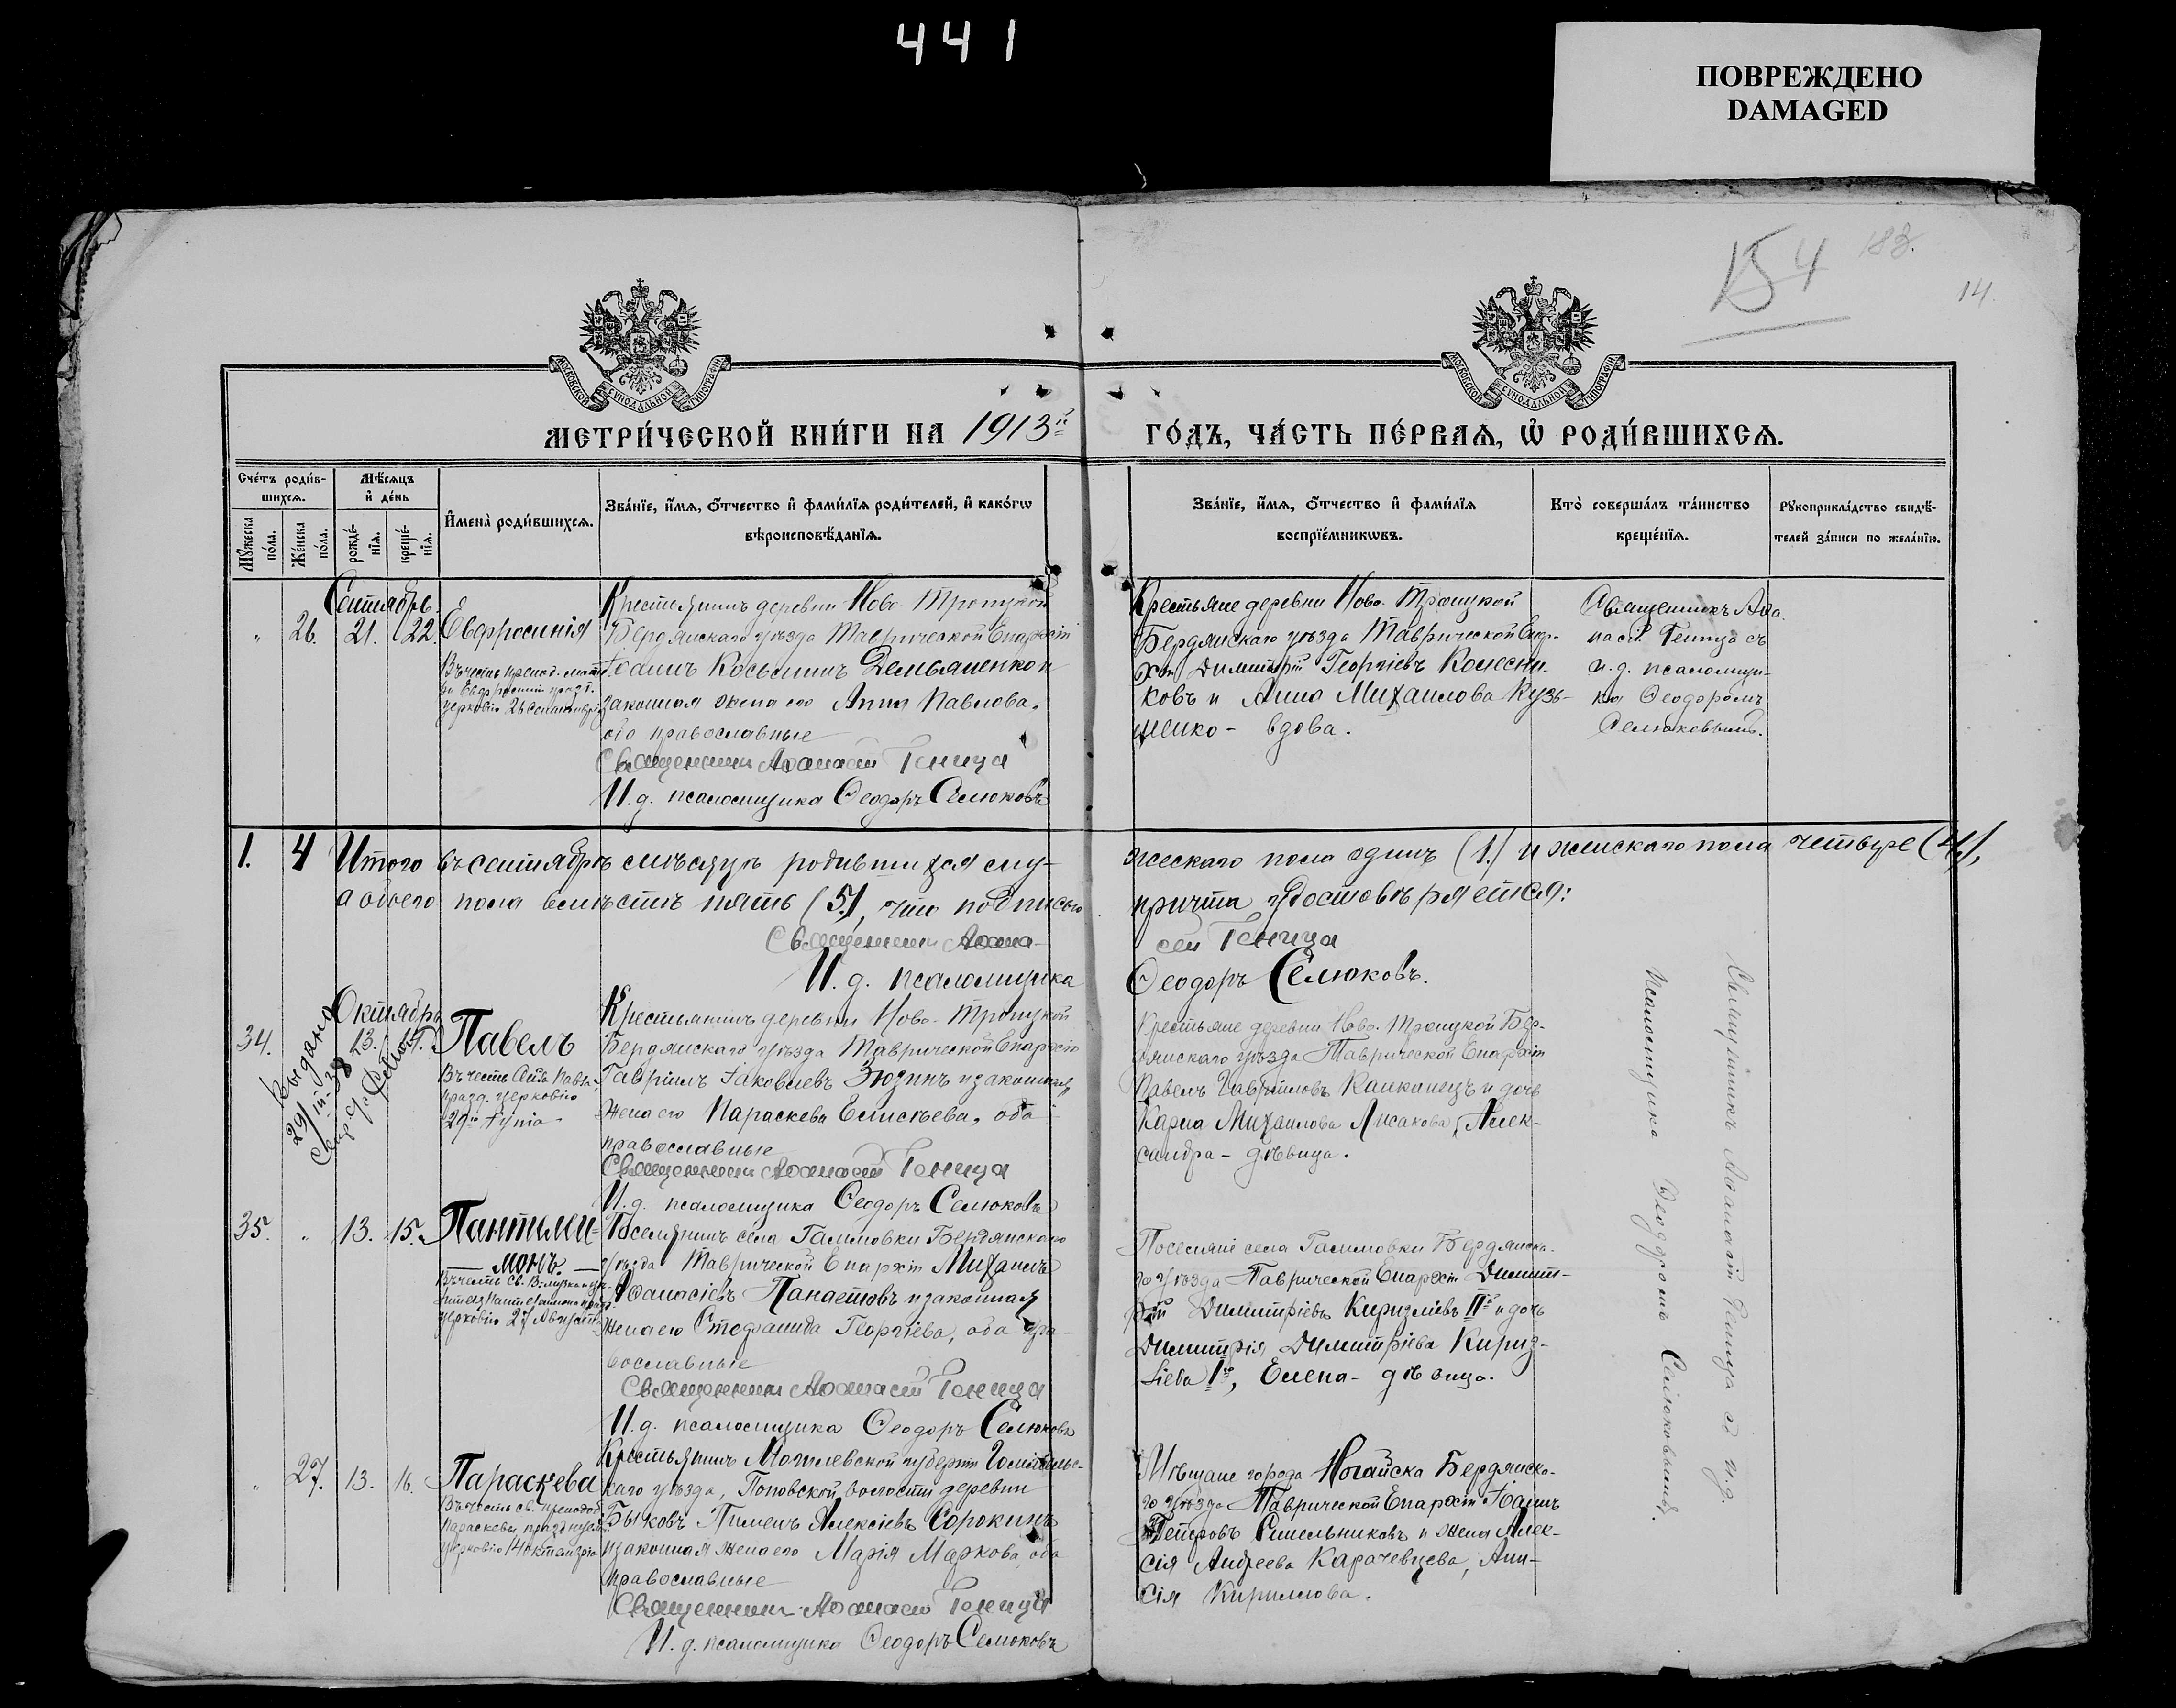 441
ПОВРЕЖДЕНО
DAMAGED
154
183.
14.
МОСКОВСКОЙ СѴНОДАЛЬНОЙ ТИПОГРАФІИ
МОСКОВСКОЙ СѴНОДАЛЬНОЙ ТИПОГРАФІИ
МЕТРИ́ЧЕСКОЙ КНИ́ГИ НА 1913й
ГО́ДЪ, ЧА́СТЬ ПЕ́РВАѦ, Ѽ РОДИ́ВШИХСѦ.
Сче́тъ роди́в-
шихсѧ.
Мꙋ́жеска
по́ла.
Же́нска
по́ла.
Мѣ́сѧцъ
и҆ де́нь
рожде́-
нїѧ.
креще́-
нїѧ.
И҆мена̀ роди́вшихсѧ.
Зва́нїе, и҆́мѧ, ѻ҆́тчество и҆ фами́лїѧ роди́телей, и҆ како́гѡ
вѣроисповѣ́данїѧ.
Зва́нїе, и҆́мѧ, ѻ҆́тчество и҆ фами́лїѧ
воспрїе́мникѡвъ.
Кто̀ соверша́лъ та́инство
креще́нїѧ.
Рꙋкоприкла́дство свидѣ́-
телей за́писи по жела́нїю.
Сентябрь.
" 26. 21. 22. Евфросинія
Въ честь препод. мате-
ри Евфросиніи празд.
церковію 25 Сентября
Крестьянинъ деревни Ново-Троицкой
Бердянскаго уѣзда Таврической Епархіи
Іоаннъ Косьминъ Демьяненко и
законная жена его Анна Павлова,
оба православные
Священникъ Аѳанасій Геница
И. д. псаломщика Ѳеодоръ Селюковъ
Крестьяне деревни Ново-Троицкой
Бердянскаго уѣзда Таврической Епар-
хіи Димитрій Георгіевъ Колесни-
ковъ и Анна Михаилова Кузь-
менко - вдова.
Священникъ Аѳа-
насій Геница съ
и. д. псаломщи-
ка Ѳеодоромъ
Селюковымъ.
1. 4 Итого въ сентябрѣ мѣсяцѣ родившихся му-
жескаго пола одинъ (1.) и женскаго пола четыре (4),
а обоего пола вмѣстѣ пять (5.), что подписью
причта удостовѣряется:
Священникъ Аѳана-
сій Геница
И. д. псаломщика
Ѳеодоръ Селюковъ.
Октябрь
34. 13. Павелъ
Въ честь Ап. Павла
празд. церковію
29го Іунія
Выдано
29/III-38
Крестьянинъ деревни Ново-Троицкой
Бердянскаго уѣзда Таврической Епархіи
Гавріилъ Іаковлевъ Зюзинъ и законная
жена его Параскева Елисѣева, оба
православные
Священникъ Аѳанасій Геница
И. д. псаломщика Ѳеодоръ Селюковъ
Крестьяне деревни Ново-Троицкой Бер-
дянскаго уѣзда Таврической Епархіи
Павелъ Гавриловъ Капканецъ и дочь
Карпа Михаилова Лисакова, Алек-
сандра - дѣвица.
35. " 13. 15. Пантилеи-
монъ.
Въ честь Св. Вмуч. и цѣ-
лителя Пантелеимона празд.
церковію 27
Поселянинъ села Гамовки Бердянскаго
уѣзда Таврической Епархіи Михаилъ
Аѳанасіевъ Панаетовъ и законная
жена его Стефанида Георгіева, оба пра-
вославные
Священникъ Аѳанасій Геница
И. д. псаломщика Ѳеодоръ Селюковъ
Поселяне села Гамовки Бердянска-
го уѣзда Таврической Епархіи Димит-
рій Димитріевъ Киризліевъ IIй и дочь
Димитрія Димитріева Кириз-
ліева Iго, Елена - дѣвица.
" 27. 13. 16. Параскева
Въ честь св. препод.
Параскевы празднуемой
церковію 14 октября
Крестьянинъ Могилевской губерніи Гомельс-
каго уѣзда, Поповской волости деревни
Быковъ Пименъ Алексіевъ Сорокинъ
и законная жена его Марія Маркова, оба
православные
Священникъ Аѳанасій Геница
И. д. псаломщика Ѳеодоръ Селюковъ
Мѣщане города Ногайска Бердянска-
го уѣзда Таврической Епархіи Іоаннъ
Петровъ Синельниковъ и жена Алек-
сія Андреева Карачевцева, Ани-
сія Кириллова.
Священникъ Аѳанасій Геница съ и. д.
псаломщика Ѳеодоромъ Селюковымъ.